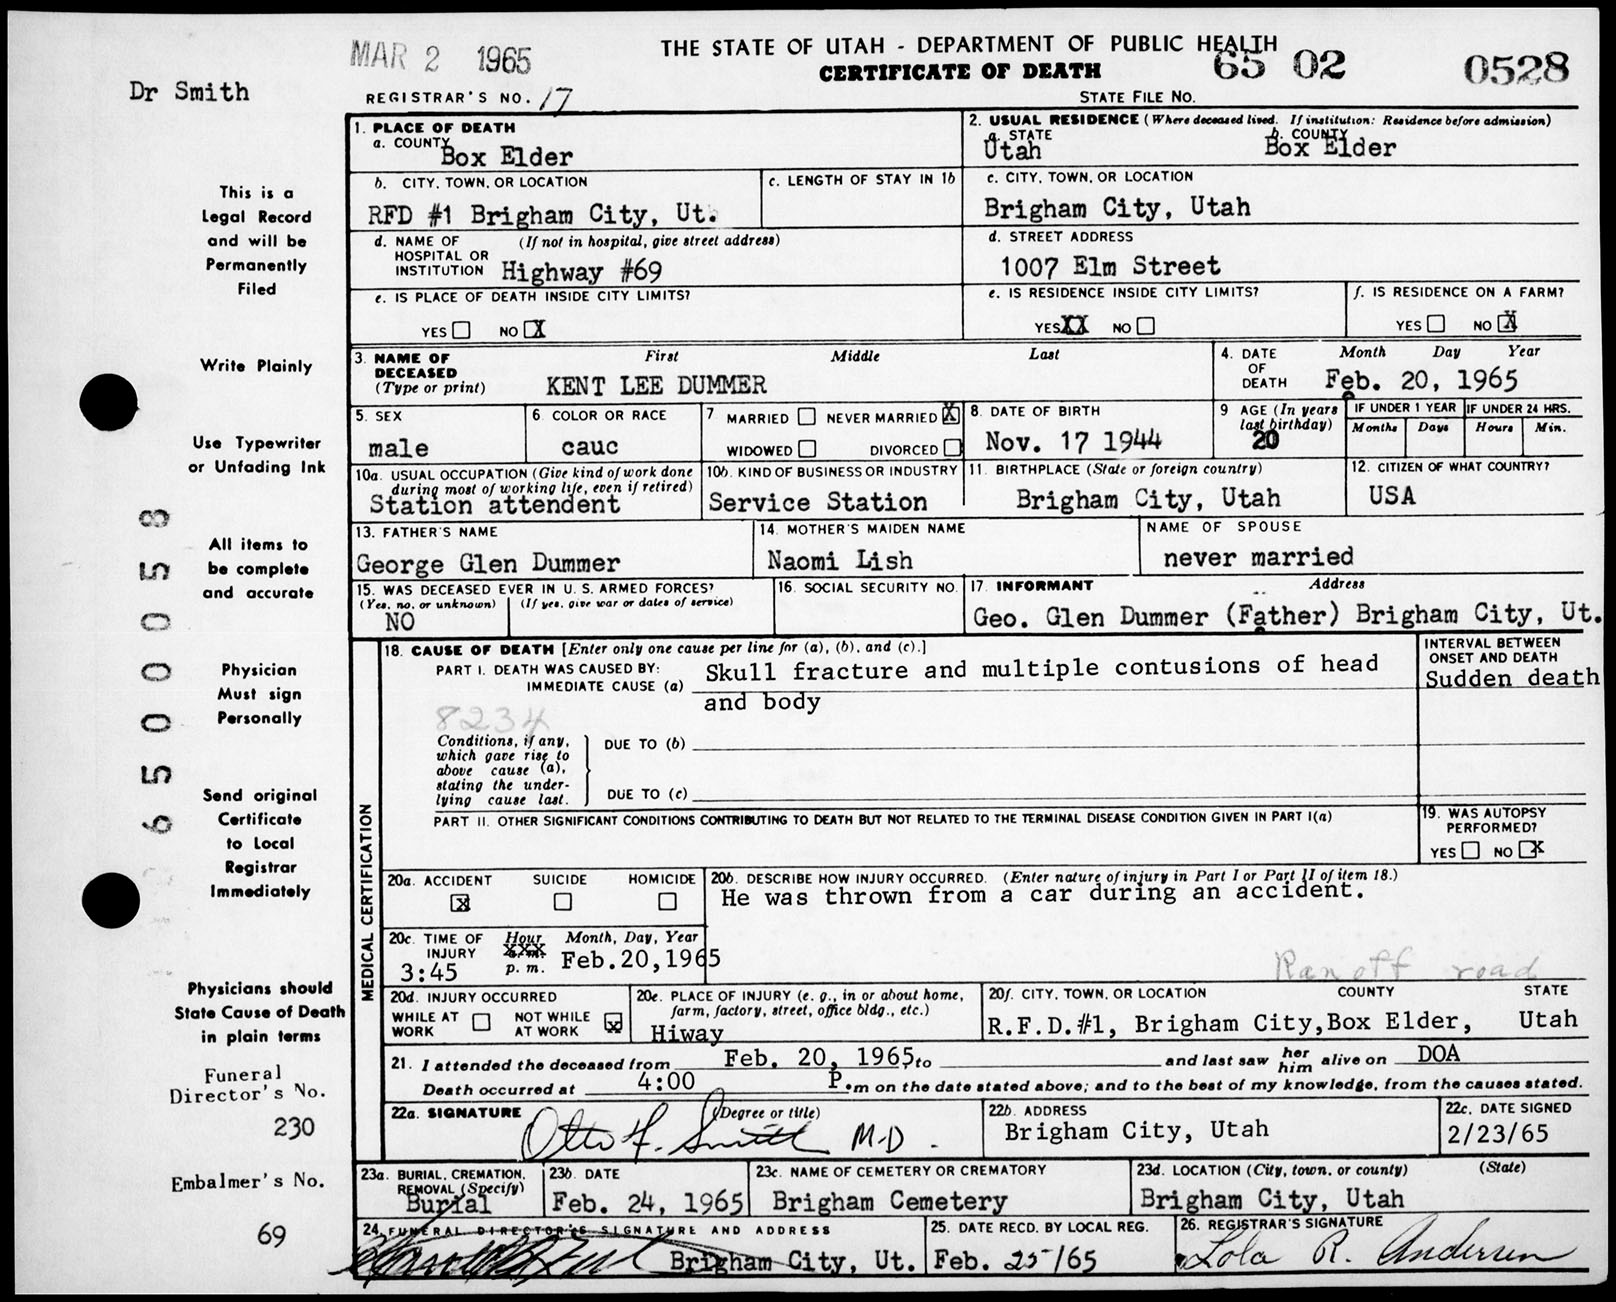 MAR 2 1965
THE STATE OF UTAH - DEPARTMENT OF PUBLIC HEALTH
CERTIFICATE OF DEATH
65 02 0528
Dr Smith
REGISTRAR'S NO. 17
STATE FILE NO.
1. PLACE OF DEATH
a. COUNTY
Box Elder
2. USUAL RESIDENCE (Where deceased lived. If institution: Residence before admission)
a. STATE
Utah
b. COUNTY
Box Elder
b. CITY, TOWN, OR LOCATION
RFD #1 Brigham City, Ut.
c. LENGTH OF STAY IN 1b
c. CITY, TOWN, OR LOCATION
Brigham City, Utah
d. NAME OF HOSPITAL OR INSTITUTION
(If not in hospital, give street address)
Highway #69
d. STREET ADDRESS
1007 Elm Street
e. IS PLACE OF DEATH INSIDE CITY LIMITS?
YES NO X
e. IS RESIDENCE INSIDE CITY LIMITS?
YES XX NO
f. IS RESIDENCE ON A FARM?
YES NO X
3. NAME OF DECEASED
(Type or print)
First Middle Last
KENT LEE DUMMER
4. DATE OF DEATH
Month Day Year
Feb. 20, 1965
5. SEX
male
6. COLOR OR RACE
cauc
7 MARRIED NEVER MARRIED X
WIDOWED DIVORCED
8. DATE OF BIRTH
Nov. 17 1944
9 AGE (In years last birthday)
20
IF UNDER 1 YEAR
Months Days
IF UNDER 24 HRS.
Hours Min.
10a. USUAL OCCUPATION (Give kind of work done during most of working life, even if retired)
Station attendent
10b. KIND OF BUSINESS OR INDUSTRY
Service Station
11. BIRTHPLACE (State or foreign country)
Brigham City, Utah
12. CITIZEN OF WHAT COUNTRY?
USA
13. FATHER'S NAME
George Glen Dummer
14. MOTHER'S MAIDEN NAME
Naomi Lish
NAME OF SPOUSE
never married
15. WAS DECEASED EVER IN U. S. ARMED FORCES?
(Yes, no, or unknown) (If yes, give war or dates of service)
NO
16. SOCIAL SECURITY NO.
17. INFORMANT Address
Geo. Glen Dummer (Father) Brigham City, Ut.
18. CAUSE OF DEATH [Enter only one cause per line for (a), (b), and (c).]
PART I. DEATH WAS CAUSED BY:
IMMEDIATE CAUSE (a)
Skull fracture and multiple contusions of head
and body
8234
INTERVAL BETWEEN ONSET AND DEATH
Sudden death
Conditions, if any, which gave rise to above cause (a), stating the under-lying cause last.
DUE TO (b)
DUE TO (c)
PART II. OTHER SIGNIFICANT CONDITIONS CONTRIBUTING TO DEATH BUT NOT RELATED TO THE TERMINAL DISEASE CONDITION GIVEN IN PART I(a)
19. WAS AUTOPSY PERFORMED?
YES NO X
MEDICAL CERTIFICATION
20a. ACCIDENT SUICIDE HOMICIDE
X
20b. DESCRIBE HOW INJURY OCCURRED. (Enter nature of injury in Part I or Part II of item 18.)
He was thrown from a car during an accident.
Ran off road
20c. TIME OF INJURY
Hour Month, Day, Year
3:45 p. m. Feb.20,1965
20d. INJURY OCCURRED
WHILE AT WORK NOT WHILE AT WORK X
20e. PLACE OF INJURY (e. g., in or about home, farm, factory, street, office bldg., etc.)
Hiway
20f. CITY, TOWN, OR LOCATION COUNTY STATE
R.F.D.#1, Brigham City,Box Elder, Utah
21. I attended the deceased from Feb. 20, 1965, to and last saw her him alive on DOA
Death occurred at 4:00 P.m on the date stated above; and to the best of my knowledge, from the causes stated.
22a. SIGNATURE (Degree or title)
Otto F. Smith M-D.
22b. ADDRESS
Brigham City, Utah
22c. DATE SIGNED
2/23/65
23a. BURIAL, CREMATION, REMOVAL (Specify)
Burial
23b. DATE
Feb. 24, 1965
23c. NAME OF CEMETERY OR CREMATORY
Brigham Cemetery
23d. LOCATION (City, town, or county) (State)
Brigham City, Utah
24. FUNERAL DIRECTOR'S SIGNATURE AND ADDRESS
Brigham City, Ut.
25. DATE RECD. BY LOCAL REG.
Feb. 25/65
26. REGISTRAR'S SIGNATURE
Lola R. Andersen
This is a
Legal Record
and will be
Permanently
Filed
Write Plainly
Use Typewriter
or Unfading Ink
All items to
be complete
and accurate
Physician
Must sign
Personally
Send original
Certificate
to Local
Registrar
Immediately
Physicians should
State Cause of Death
in plain terms
Funeral
Director's No.
230
Embalmer's No.
69
65000058